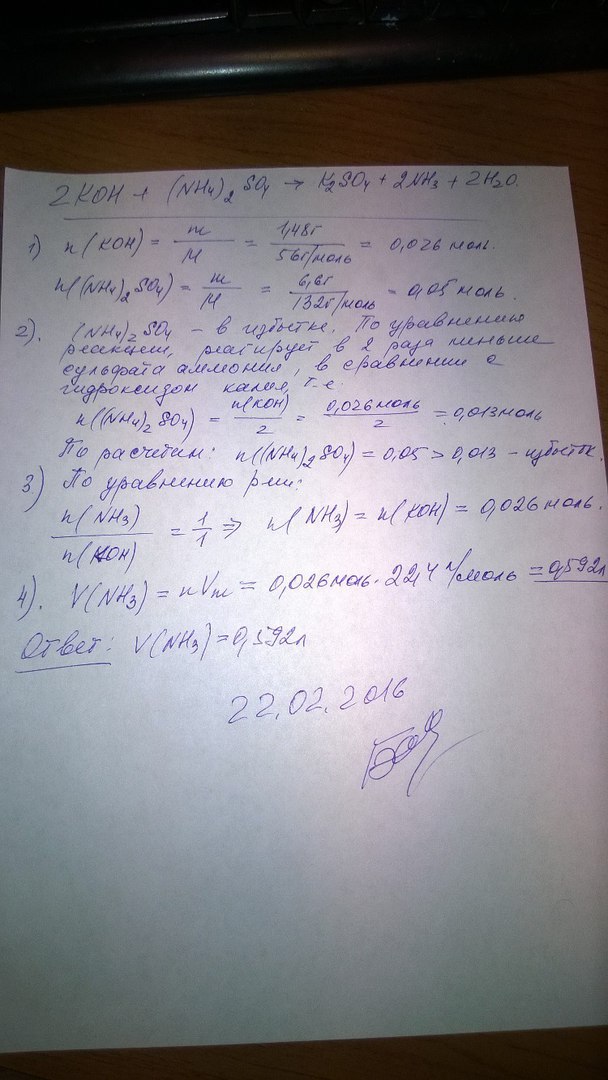 2KOH + (NH₄)₂SO₄ → K₂SO₄ + 2NH₃ + 2H₂O.
1) n(KOH) = m/M = 1,48г/56г/моль = 0,026 моль.
n((NH₄)₂SO₄) = m/M = 6,6г/132г/моль = 0,05 моль.
2). (NH₄)₂SO₄ – в избытке. По уравнению
реакции, реагирует в 2 раза меньше
сульфата аммония, в сравнении с
гидроксидом калия, т.е.
n((NH₄)₂SO₄) = n(KOH)/2 = 0,026 моль/2 = 0,013 моль
По расчётам: n((NH₄)₂SO₄) = 0,05 > 0,013 – избыток.
3) По уравнению р-ии:
n(NH₃)/n(KOH) = 1/1 ⇒ n(NH₃) = n(KOH) = 0,026 моль.
4). V(NH₃) = nVm = 0,026 моль · 22,4 л/моль = 0,592л
Ответ: V(NH₃) = 0,592л
22.02.2016